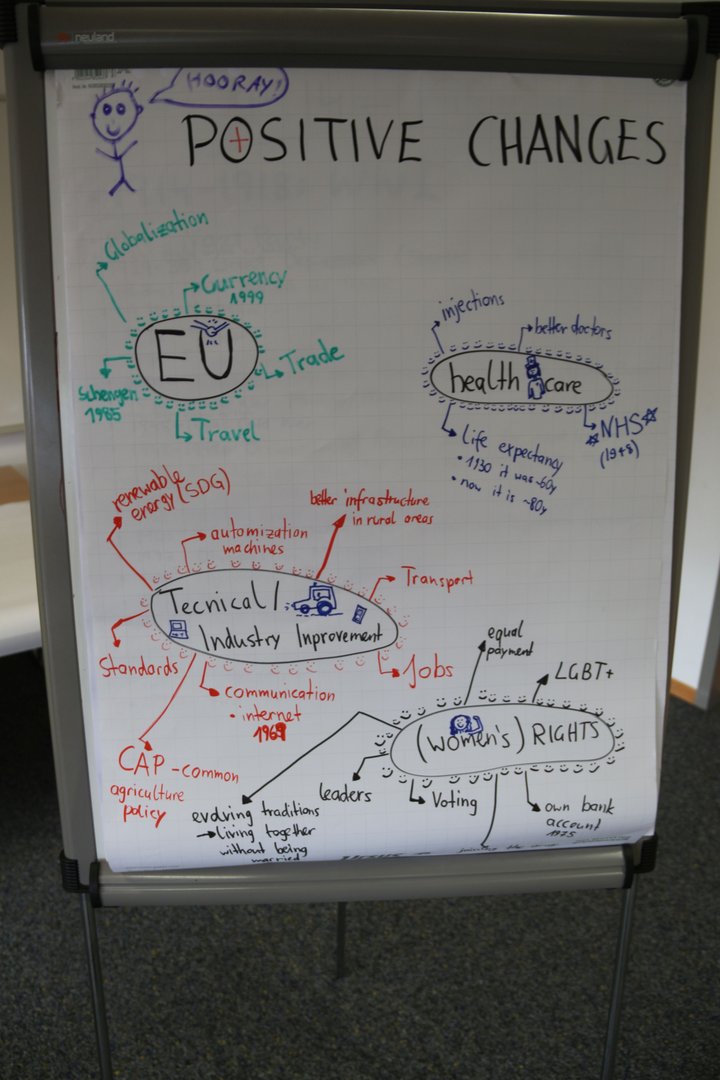 neuland
HOORAY!
POSITIVE CHANGES
Globalization
Currency
1999
EU
Trade
Schengen
1985
Travel
injections
better doctors
health care
Life expectancy
• 1930 it was ~60y
• now it is ~80y
NHS
(1948)
renewable
energy (SDG)
automization
machines
better infrastructure
in rural areas
Transport
Tecnical /
Industry Inprovement
Standards
communication
• internet
1969
Jobs
CAP - common
agriculture
policy
equal
payment
LGBT+
(women's) RIGHTS
leaders
Voting
own bank
account
1975
evolving traditions
→ living together
without being
married